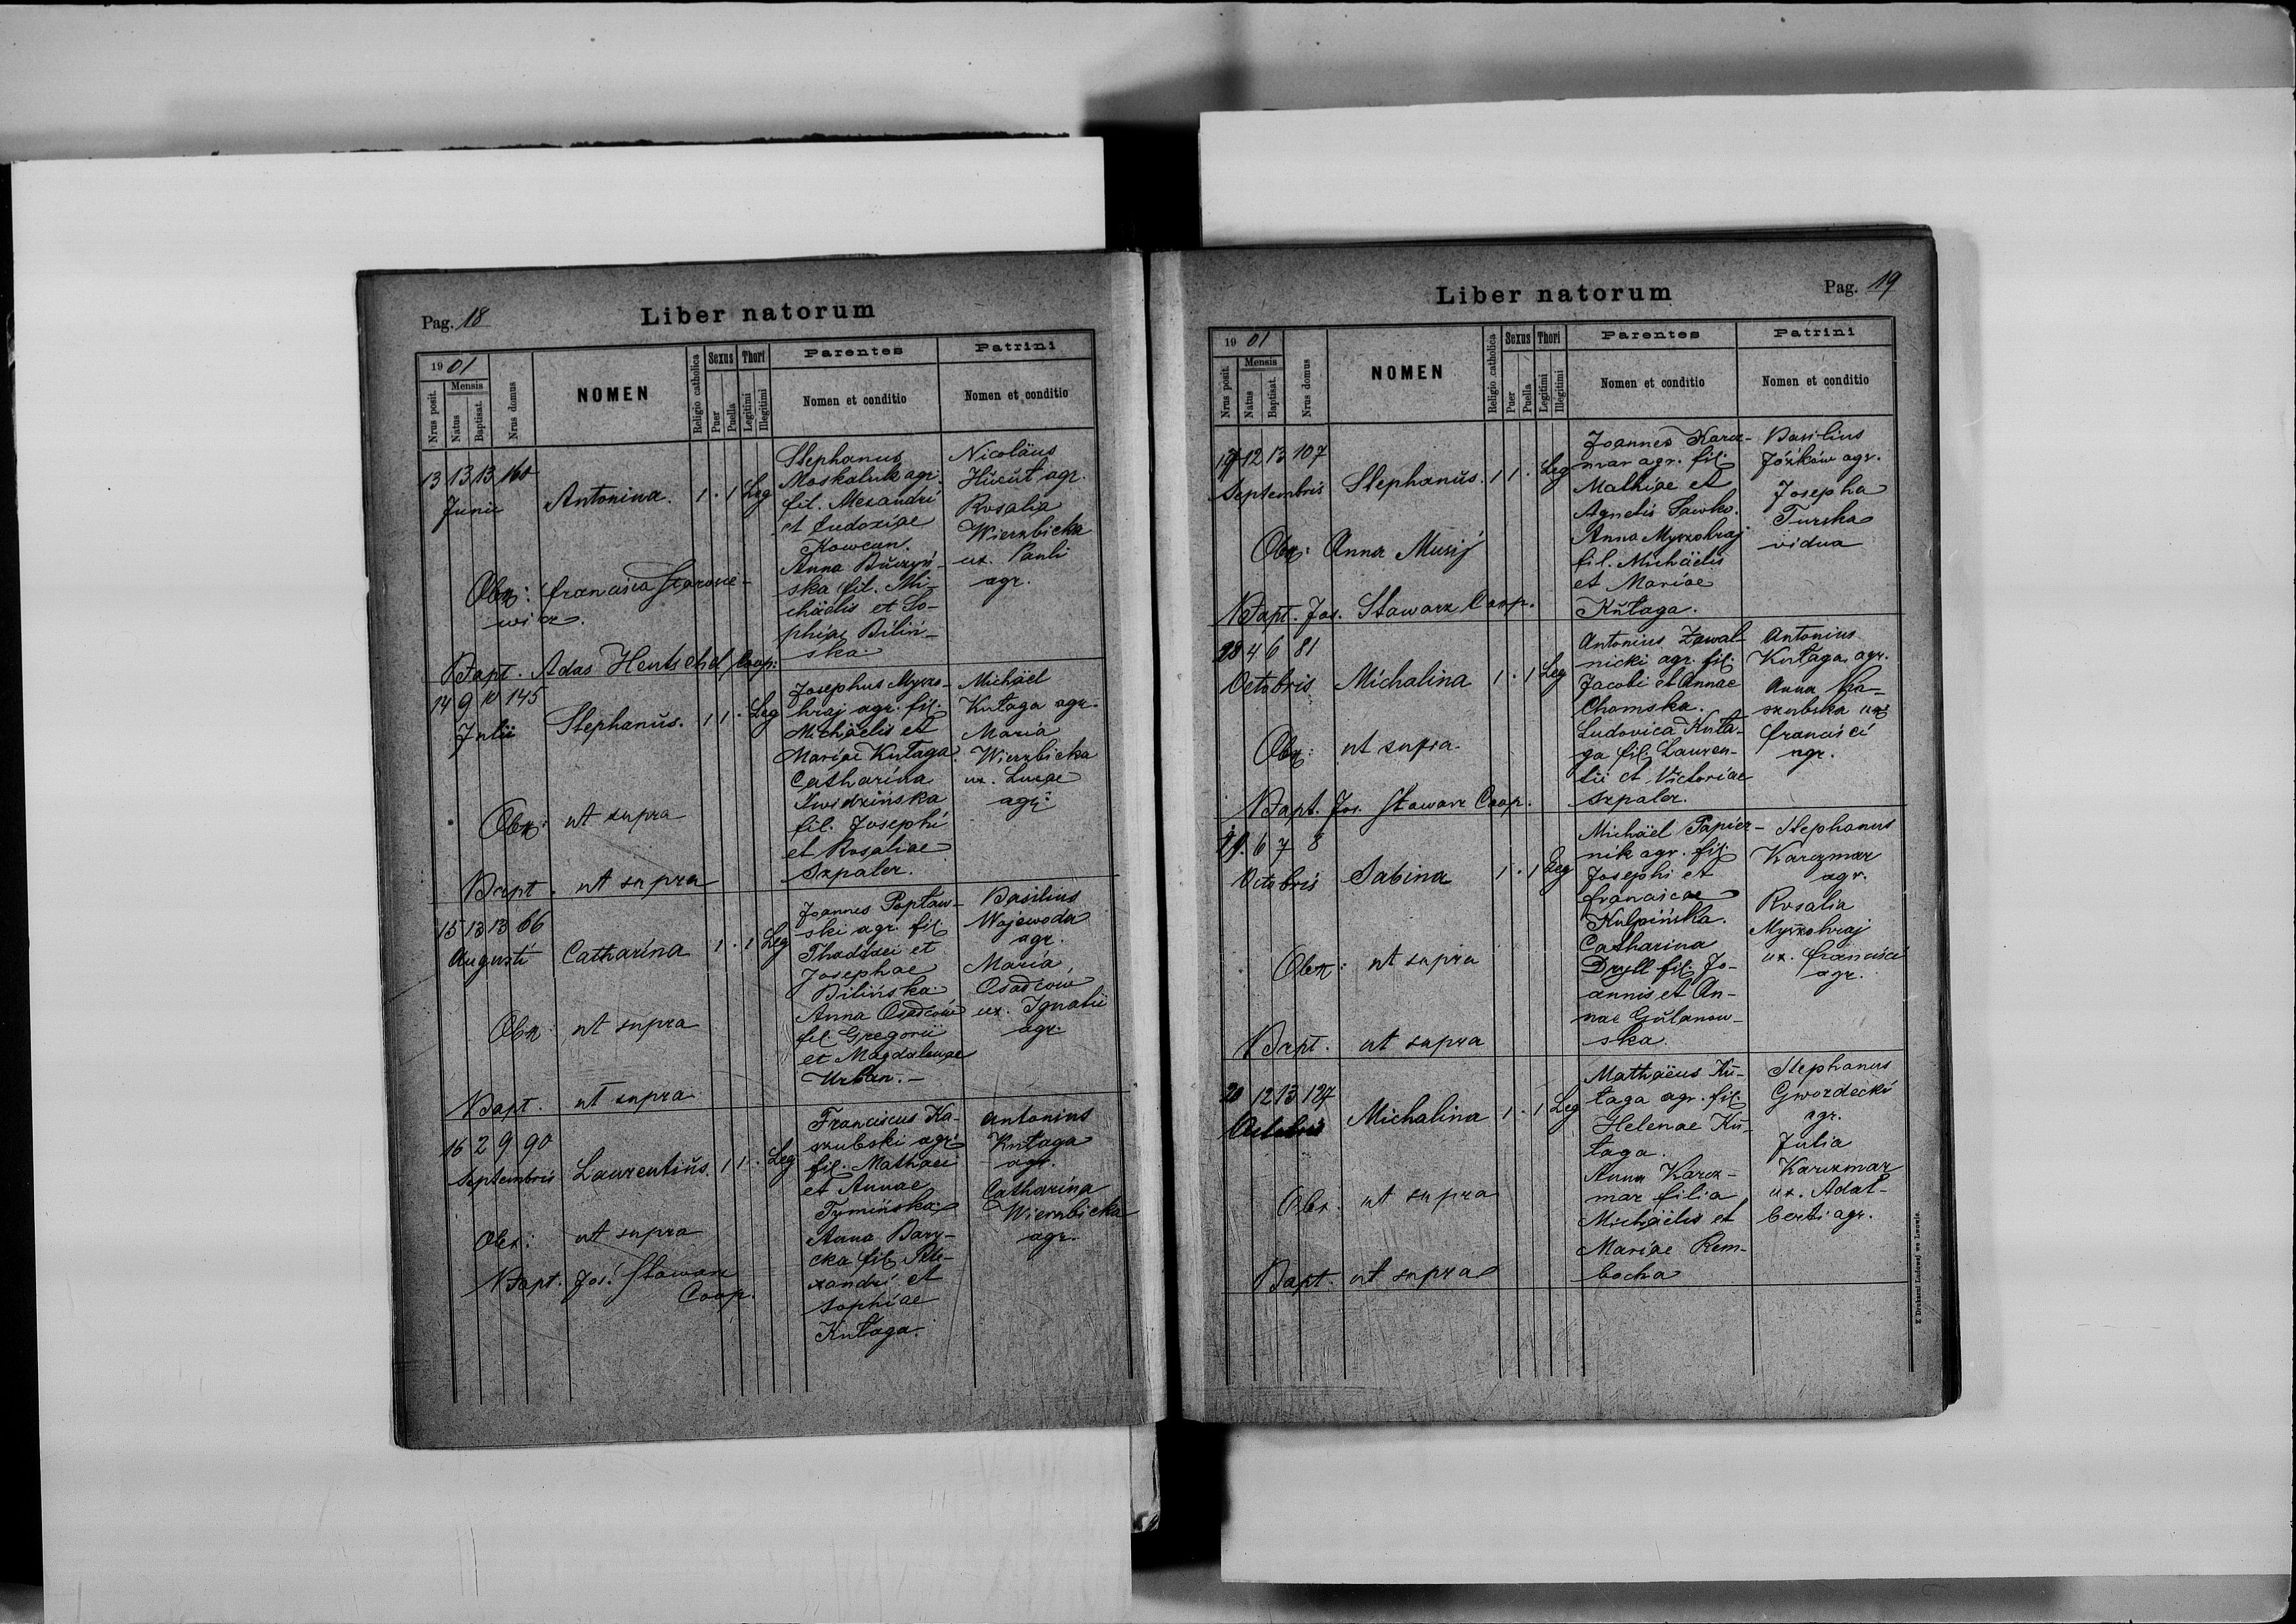 Pag. 18
Liber natorum
19 01
Nrus posit.
Mensis
Natus
Baptisat.
Nrus domus
NOMEN
Religio catholica
Sexus
Puer
Puella
Thori
Legitimi
Illegitimi
Parentes
Nomen et conditio
Patrini
Nomen et conditio
13 13 13 160
Junii
Antonina. 1 . 1 Leg
Stephanus
Moskaluk agr.
fil. Alexandri
et Eudoxiae
Kowcun.
Anna Bučzyń-
ska fil. Mi-
chäelis et So-
phiae Biliń-
ska.
Nicoläus
Hucut agr.
Rosalia
Wierzbicka
ux. Pauli
agr.
Obx: Francisca
wicz.
Bapt. Adas Hentschel Coop:
14 9 10 145
Julii
Stephanus. 1 1 . Leg
Josephus Myszo-
hraj agr. fil.
Michäelis et
Mariae Kutaga.
Catharina
Kwidzińska
fil. Josephi
et Rosaliae
Szpaler.
Michäel
Kutaga agr.
Maria
Wierzbicka
ux. Lucae
agr.
Obx: ut supra
Bapt. ut supra
15 13 13 66
Augusti
Catharina 1 . 1 Leg
Joannes Popław-
ski agr. fil.
Thaddaei et
Josephae
Bilińska.
Anna Osadców
fil. Gregorii
et Magdalenae
Urban.-
Basilius
Wojewoda
agr.
Maria
Osadców
ux. Ignatii
agr.
Obx: ut supra
Bapt. ut supra
16 2 9 90
Septembris
Laurentius. 1 1 . Leg
Franciscus Ka-
szubski agr.
fil. Mathaei
et Annae
Tymińska.
Anna Bary-
cka fil. Ale-
xandri et
Sophiae
Kutaga.
Antonius
Kutaga
agr.
Catharina
Wierzbicka
agr.
Obx: ut supra
Bapt. Jos. Stawarz
Coop.
Liber natorum
Pag. 19
19 01
Nrus posit.
Mensis
Natus
Baptisat.
Nrus domus
NOMEN
Religio catholica
Sexus
Puer
Puella
Thori
Legitimi
Illegitimi
Parentes
Nomen et conditio
Patrini
Nomen et conditio
12 13 107
Septembris
Stephanus. 1 1 . Leg
Joannes Karcz-
mar agr. fil.
Mathiae et
Agnetis Sawko.
Anna Myszohraj
fil. Michäelis
et Mariae
Kutaga.
Basilius
Józków agr.
Josepha
Turska
vidua
Obx: Anna Musij
Bapt. Jos. Stawarz Coop.
4 6 81
Octobris
Michalina 1 . 1 Leg
Antonius Zawal-
nicki agr. fil.
Jacobi et Annae
Chomska.
Ludovica Kuta-
ga fil. Lauren-
tii et Victoriae
Szpaler.
Antonius
Kutaga agr.
Anna Ka-
szubska ux.
Francisci
agr.
Obx: ut supra
Bapt. Jos. Stawarz Coop.
6 7 8
Octobris
Sabina 1 . 1 Leg
Michäel Papier-
nik agr. fil.
Josephi et
Franciscae
Kulpińska.
Catharina
Dryll fil. Jo-
annis et An-
nae Gulanow-
ska.
Stephanus
Karczmar
agr.
Rosalia
Myszohraj
ux. Francisci
agr.
Obx: ut supra
Bapt. ut supra
20 12 13 127
Octobris
Michalina 1 . 1 Leg
Mathäeus Ku-
taga agr. fil.
Helenae Ku-
taga.
Anna Karcz-
mar filia
Michäelis et
Mariae Rem-
bocha
Stephanus
Gwozdecki
agr.
Julia
Karczmar
ux. Adal-
berti agr.
Obx. ut supra
Bapt. ut supra
Z Drukarni Ludowej we Lwowie.